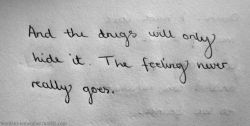 And the drugs will only
hide it. The feeling never
really goes.